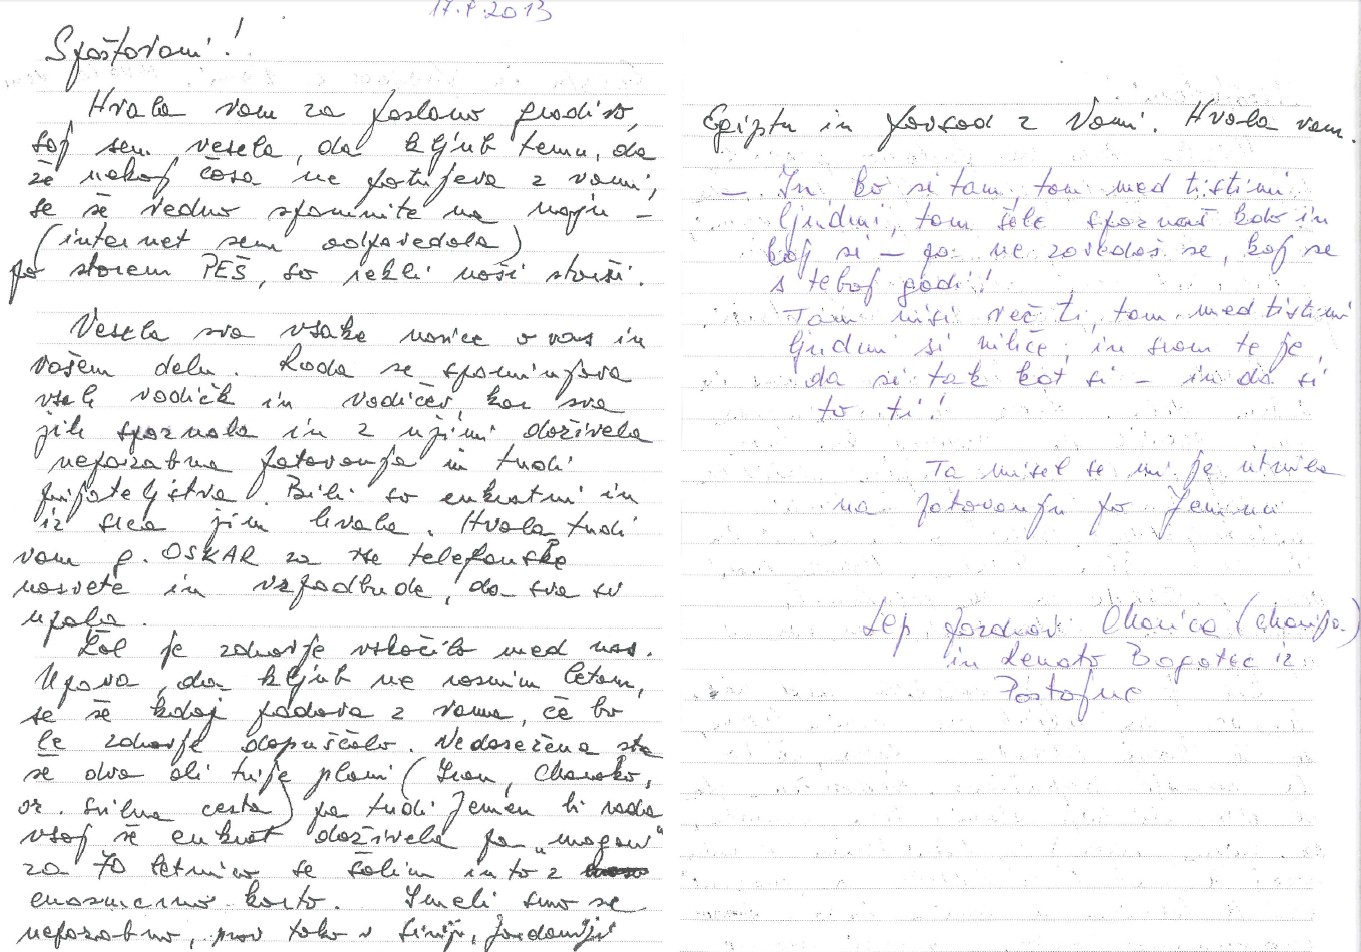 17.8.2013
Spoštovani!
Hvala vam za poslano gradivo,
saj sem vesela, da kljub temu, da
že nekaj časa ne potujeva z vami,
se še vedno spomnite na naju -
(internet sem odpovedala)
po starem PEŠ, so rekli naši starši.
Vesela sva vsake novice o vas in
vašem delu. Rada se spominjava
vseh vodičk in vodičev kar sva
jih spoznala in z njimi doživela
nepozabna potovanja in tudi
prijateljstva. Bili so enkratni in
iz srca jim hvala. Hvala tudi
vam g. OSKAR za vse telefonske
nasvete in vzpodbude, da sva si
upala.
Žal je zdravje vskočilo med nas.
Upava, da kljub ne rosnim letom,
se še kdaj podava z vama, če bo
le zdravje dopuščalo. Nedosežena sta
še dva ali trije plani (Iran, Maroko,
oz. svilna cesta) pa tudi Jemen bi rada
vsaj še enkrat doživela pa "mogoče"
za 70 letnico se šalim in to z
enosmerno karto. Imeli smo se
nepozabno, prav tako v Siriji, Jordaniji
Egiptu in povsod z Vami. Hvala vam.
- In, ko si tam, tam med tistimi
ljudmi, tam šele spoznaš kdo in
kaj si - pa ne zavedaš se, kaj se
s teboj godi!
Tam nisi več ti, tam med tistimi
ljudmi si nihče, in sram te je,
da si tak kot si - in da si
to ti!
Ta misel se mi je utrnila
na potovanju po Jemnu
Lep pozdrav Marica (Marija)
in Renato Bogatec iz
Postojne